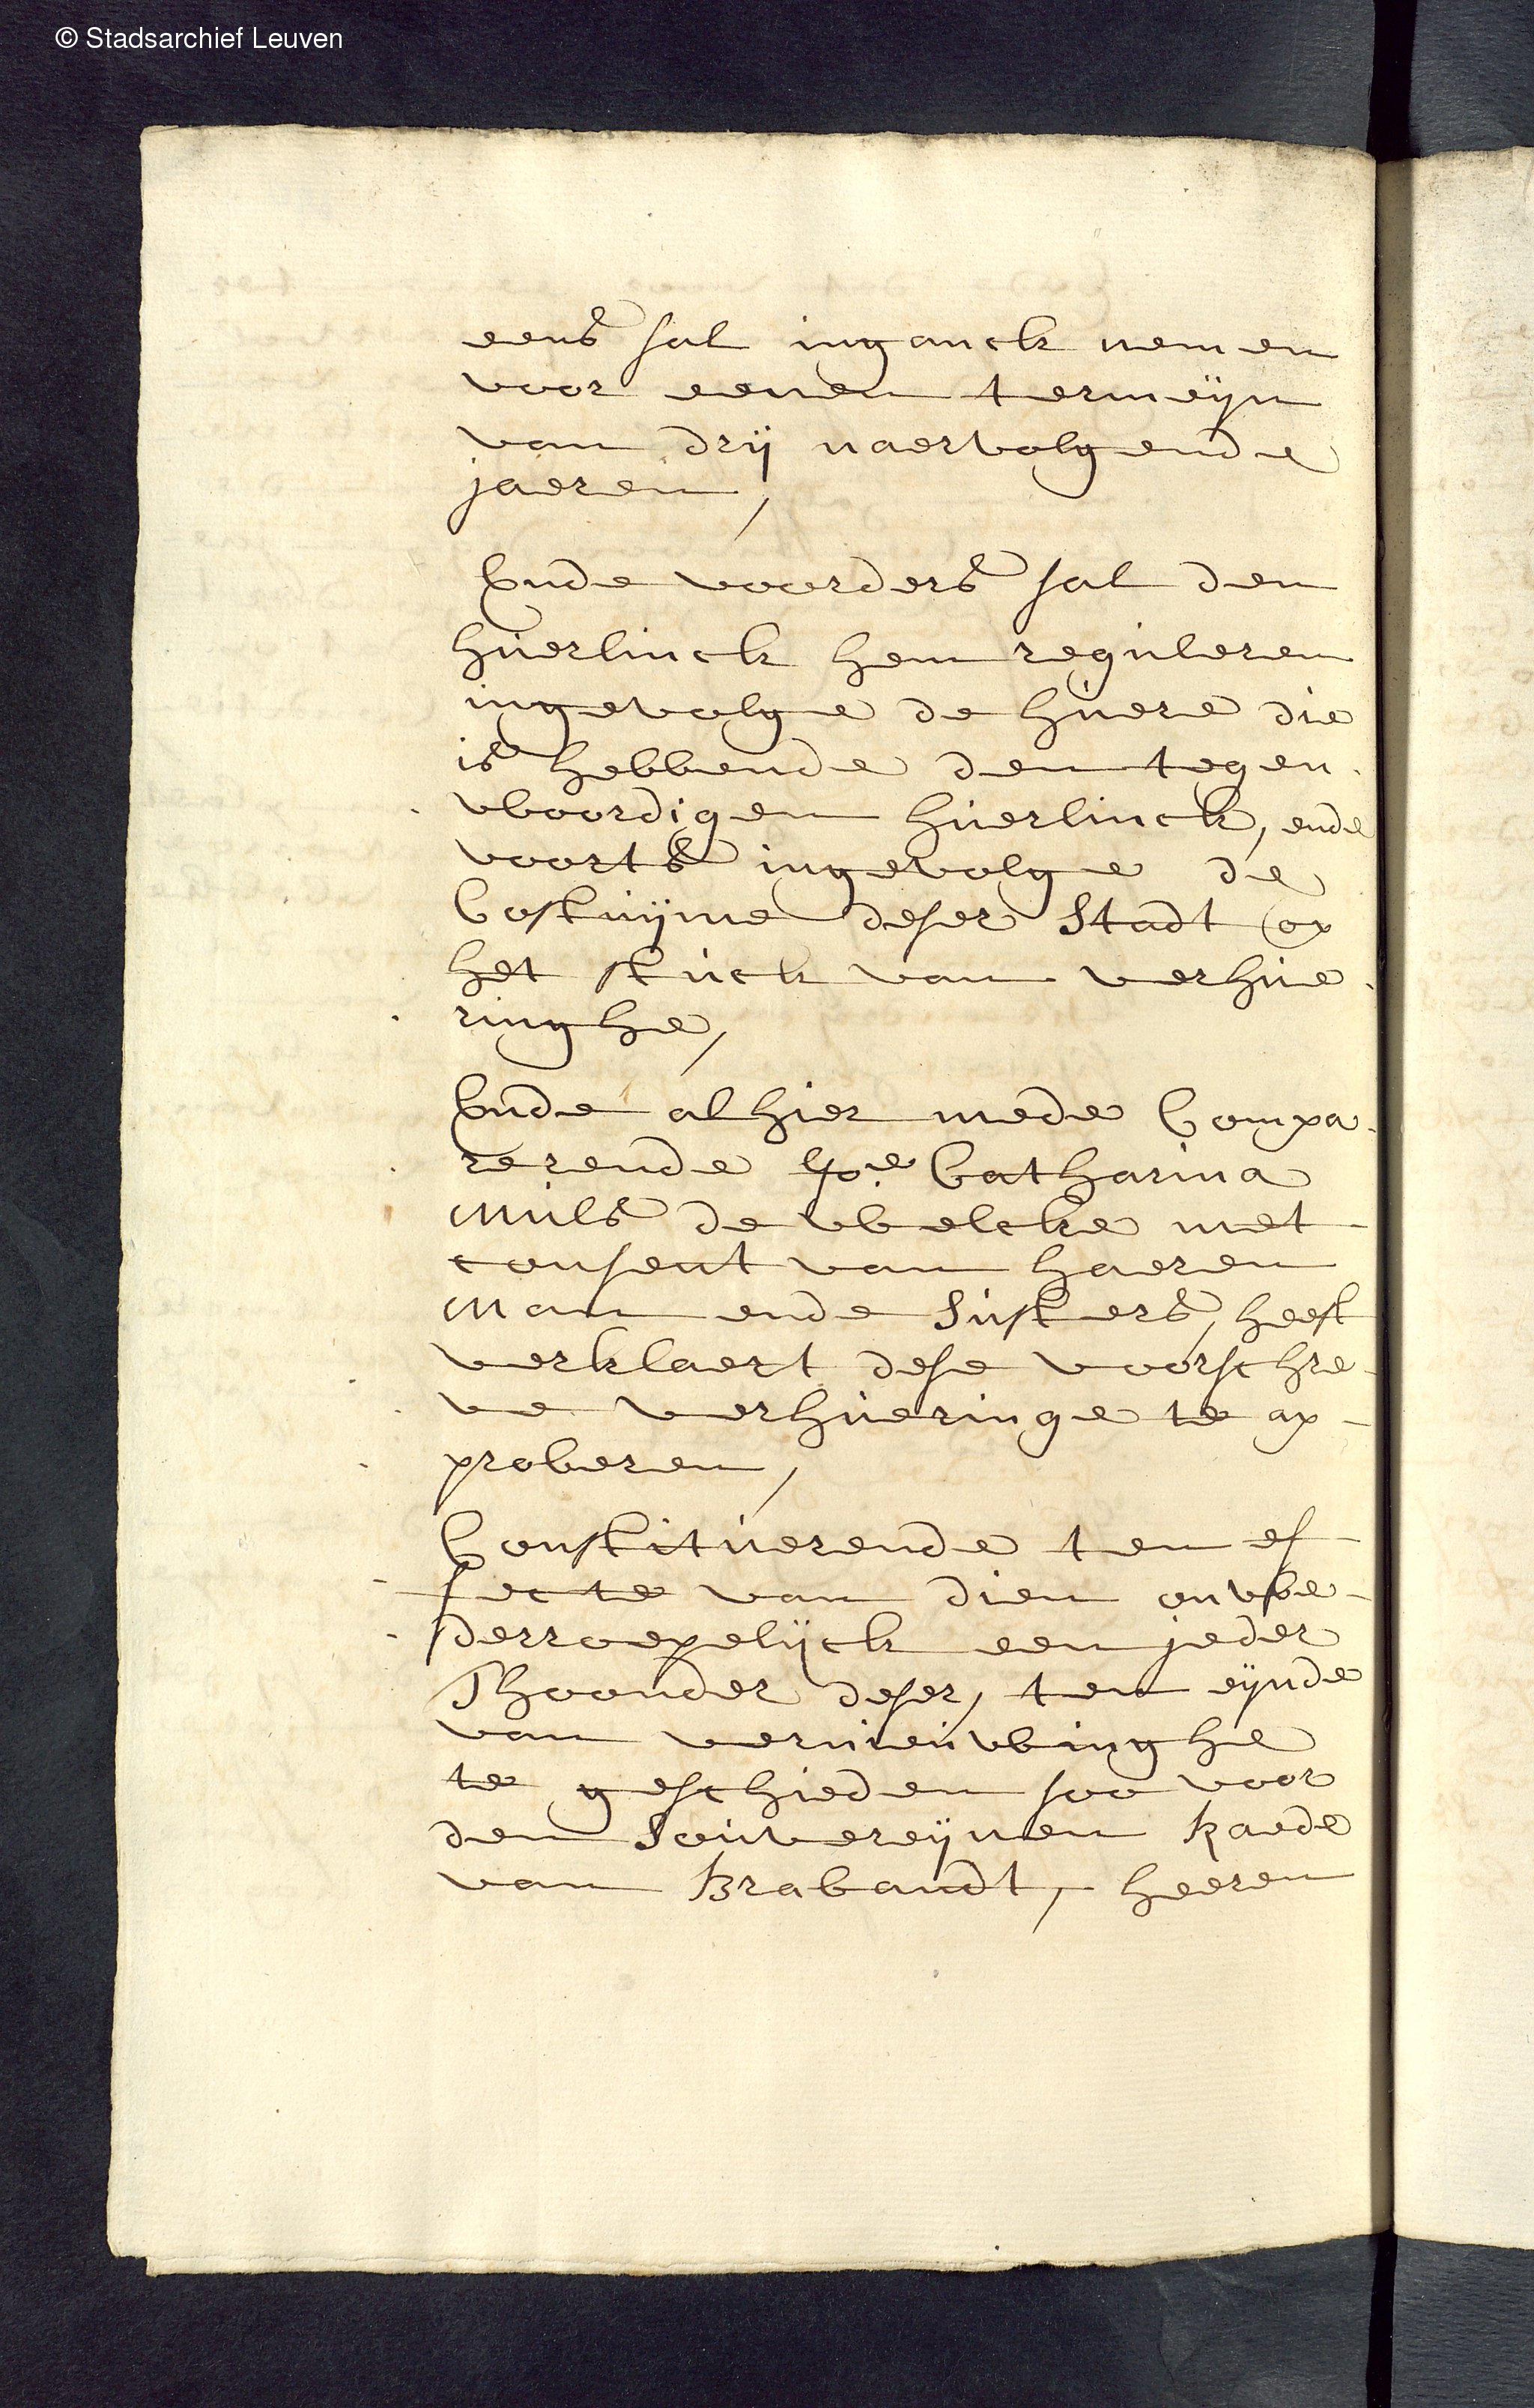 © Stadsarchief Leuven
eens sal inganck nemen
voor eenen termeyn
van drij naervolgende
jaeren,
Ende voorders sal den
huerlinck hem reguleren
ingevolge de huere die
is hebbende den tegen-
woordigen huerlinck, ende
voorts ingevolge de
Costuijme deser Stadt op
het stuck van verhue-
ringhe,
Ende alhier mede Compa-
rerende Catharina
Muls de welcke met
consent van haeren
Man ende Susters, heeft
verklaert dese voorschre-
ve verhueringe te ap-
proberen,
Constituerende ten ef-
fecte van dien onwe-
derroepelijck een jeder
Thoonder deser, ten eynde
van vernieuwinghe
te geschieden soo voor
den Souvereijnen Raede
van Brabandt, heeren